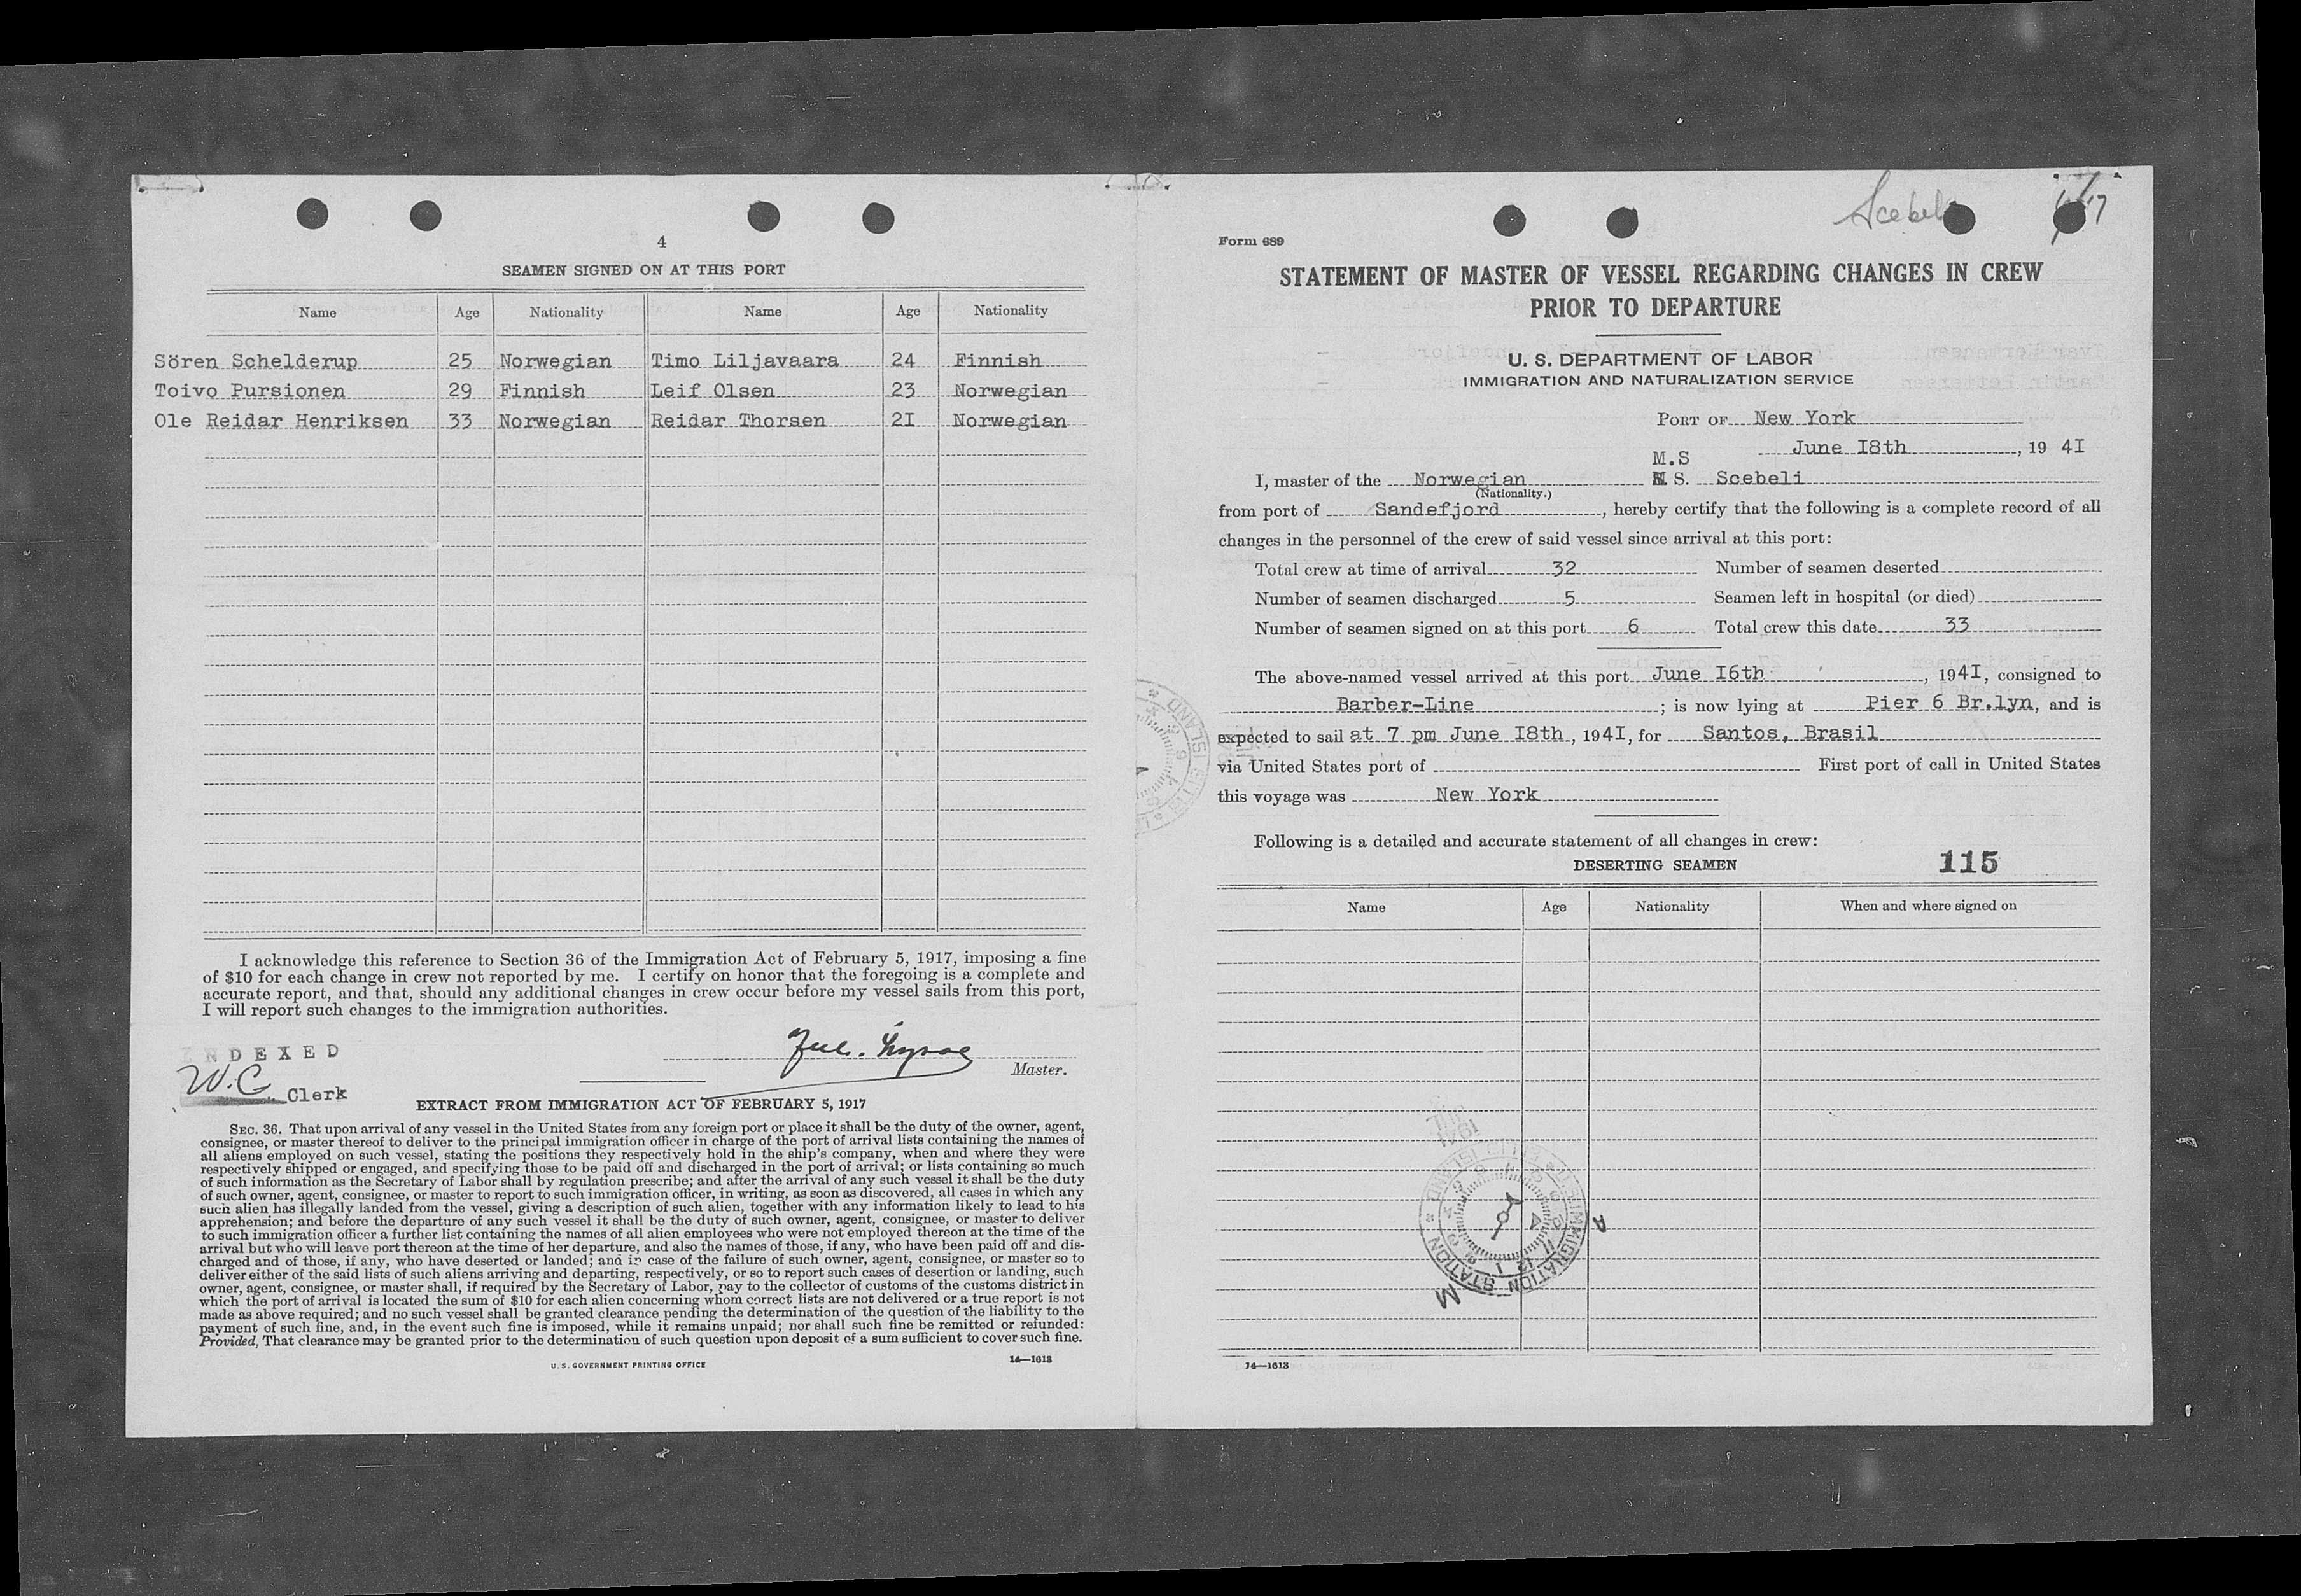 4
SEAMEN SIGNED ON AT THIS PORT
Name Age Nationality Name Age Nationality
Sören Schelderup 25 Norwegian Timo Liljavaara 24 Finnish
Toivo Pursionen 29 Finnish Leif Olsen 23 Norwegian
Ole Reidar Henriksen 33 Norwegian Reidar Thorsen 2I Norwegian
I acknowledge this reference to Section 36 of the Immigration Act of February 5, 1917, imposing a fine
of $10 for each change in crew not reported by me. I certify on honor that the foregoing is a complete and
accurate report, and that, should any additional changes in crew occur before my vessel sails from this port,
I will report such changes to the immigration authorities.
INDEXED
W.C. Clerk
Master.
EXTRACT FROM IMMIGRATION ACT OF FEBRUARY 5, 1917
SEC. 36. That upon arrival of any vessel in the United States from any foreign port or place it shall be the duty of the owner, agent,
consignee, or master thereof to deliver to the principal immigration officer in charge of the port of arrival lists containing the names of
all aliens employed on such vessel, stating the positions they respectively hold in the ship's company, when and where they were
respectively shipped or engaged, and specifying those to be paid off and discharged in the port of arrival; or lists containing so much
of such information as the Secretary of Labor shall by regulation prescribe; and after the arrival of any such vessel it shall be the duty
of such owner, agent, consignee, or master to report to such immigration officer, in writing, as soon as discovered, all cases in which any
such alien has illegally landed from the vessel, giving a description of such alien, together with any information likely to lead to his
apprehension; and before the departure of any such vessel it shall be the duty of such owner, agent, consignee, or master to deliver
to such immigration officer a further list containing the names of all alien employees who were not employed thereon at the time of the
arrival but who will leave port thereon at the time of her departure, and also the names of those, if any, who have been paid off and dis-
charged and of those, if any, who have deserted or landed; and in case of the failure of such owner, agent, consignee, or master so to
deliver either of the said lists of such aliens arriving and departing, respectively, or so to report such cases of desertion or landing, such
owner, agent, consignee, or master shall, if required by the Secretary of Labor, pay to the collector of customs of the customs district in
which the port of arrival is located the sum of $10 for each alien concerning whom correct lists are not delivered or a true report is not
made as above required; and no such vessel shall be granted clearance pending the determination of the question of the liability to the
payment of such fine, and, in the event such fine is imposed, while it remains unpaid; nor shall such fine be remitted or refunded:
Provided, That clearance may be granted prior to the determination of such question upon deposit of a sum sufficient to cover such fine.
U. S. GOVERNMENT PRINTING OFFICE 14—1613
Scebeli
Form 689
STATEMENT OF MASTER OF VESSEL REGARDING CHANGES IN CREW
PRIOR TO DEPARTURE
U. S. DEPARTMENT OF LABOR
IMMIGRATION AND NATURALIZATION SERVICE
PORT OF New York
June I8th, 19 4I
M.S
I, master of the Norwegian S. Scebeli
(Nationality.)
from port of Sandefjord, hereby certify that the following is a complete record of all
changes in the personnel of the crew of said vessel since arrival at this port:
Total crew at time of arrival 32 Number of seamen deserted
Number of seamen discharged 5 Seamen left in hospital (or died)
Number of seamen signed on at this port 6 Total crew this date 33
The above-named vessel arrived at this port June I6th, 194I, consigned to
Barber-Line; is now lying at Pier 6 Br.lyn, and is
expected to sail at 7 pm June I8th, 194I, for Santos, Brasil
via United States port of First port of call in United States
this voyage was New York
Following is a detailed and accurate statement of all changes in crew:
DESERTING SEAMEN 115
Name Age Nationality When and where signed on
IMMIGRATION STATION * ELLIS ISLAND *
14—1613